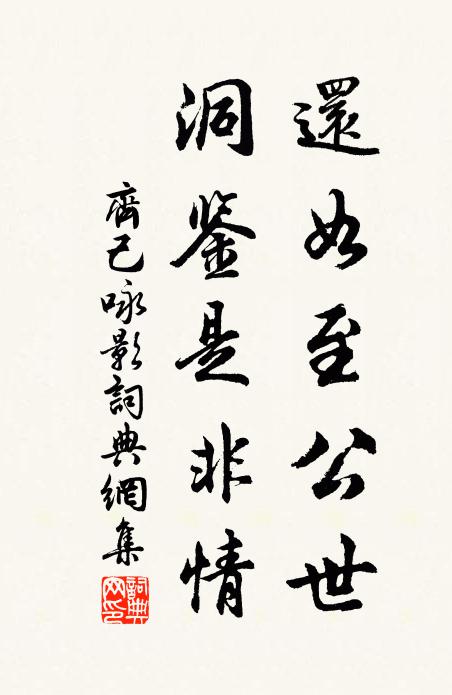 還如至公世
洞鉴是非情
齊己咏影詞典網集
詞典网印